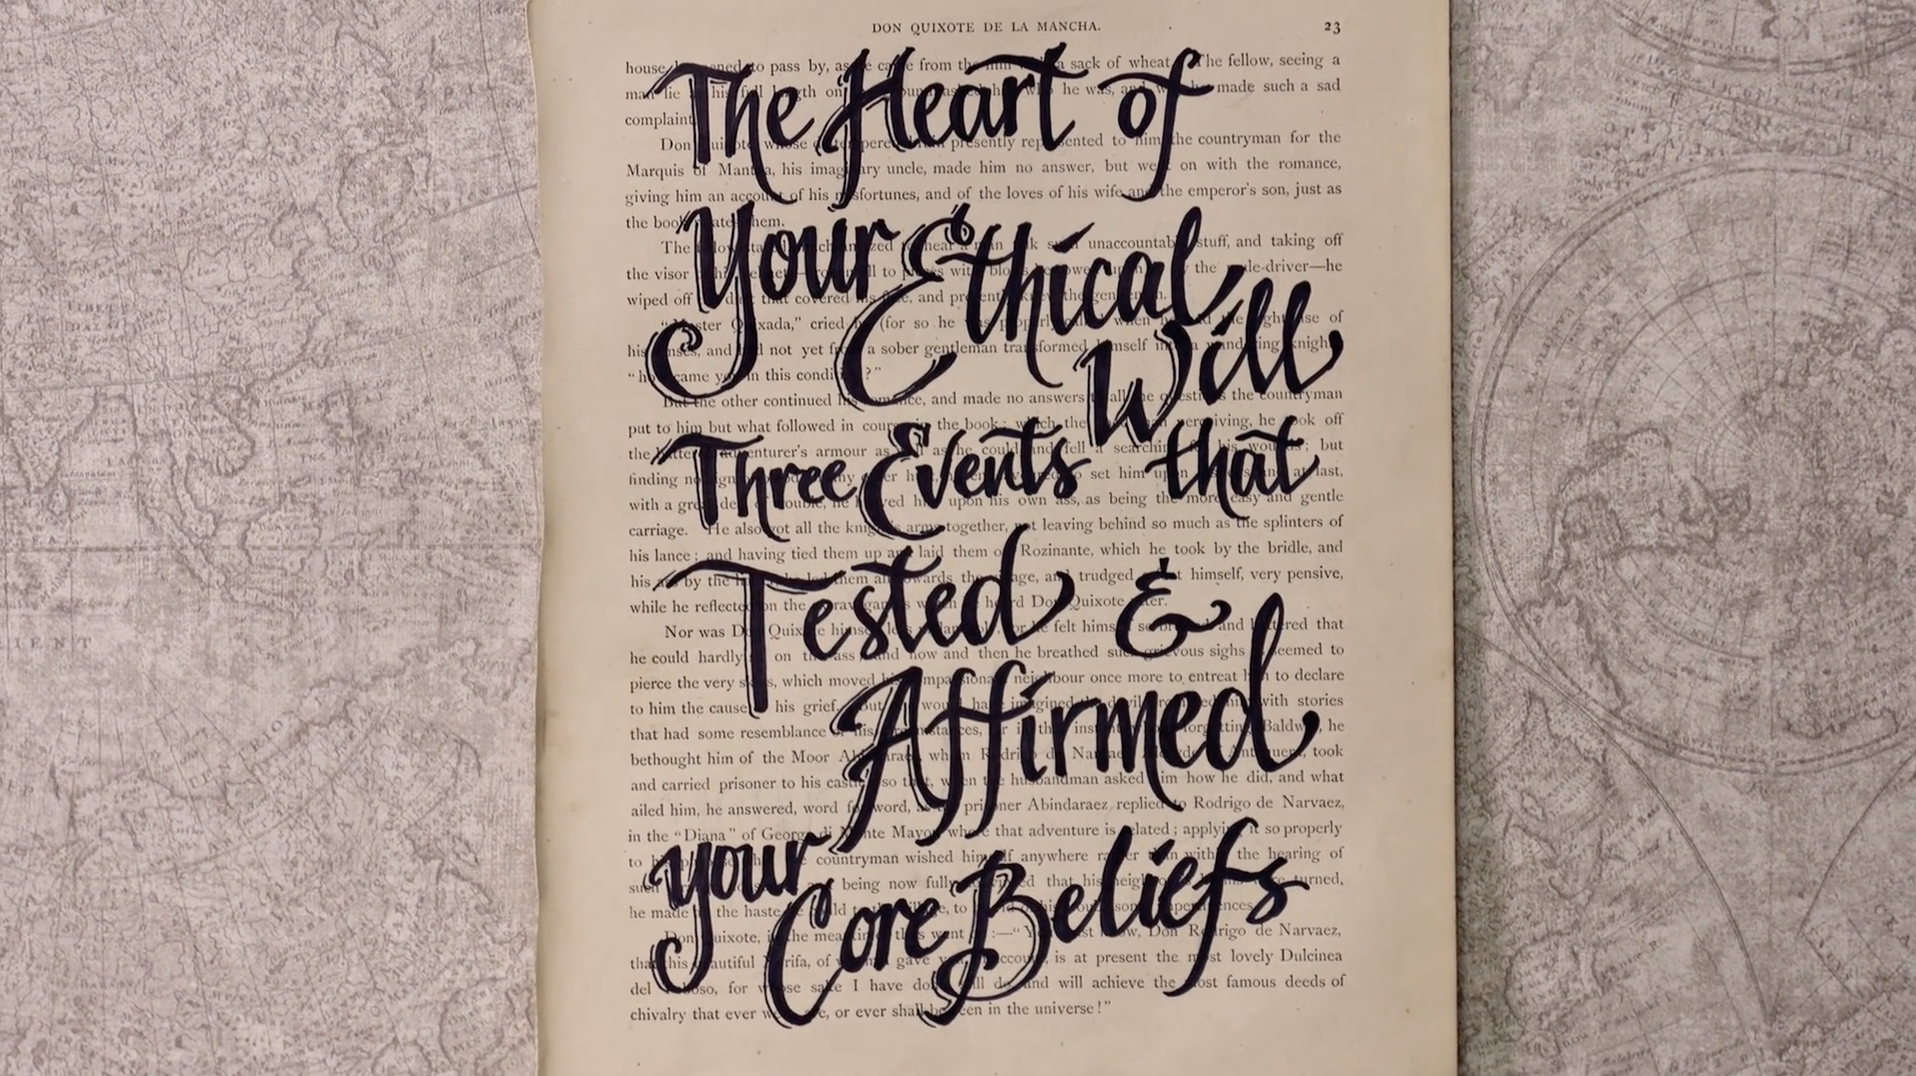 DON QUIXOTE DE LA MANCHA. 23
The Heart of
Your Ethical
Will
Three Events that
Tested &
Affirmed
your
Core Beliefs
house to pass by, as from the a sack of wheat. The fellow, seeing a
man lie his full length on he was, and made such a sad
complaint
Don whose presently represented to him the countryman for the
Marquis of Mantua, his imaginary uncle, made him no answer, but went on with the romance,
giving him an account of his misfortunes, and of the loves of his wife and the emperor's son, just as
the book them.
The to hear a man unaccountable stuff, and taking off
the visor to pieces with blows the mule-driver—he
wiped off that covered his face, and presently knew the gentleman.
"Master Quixada," cried he (for so he properly when he the right use of
his senses, and had not yet from a sober gentleman transformed himself into a wandering knight
"how came you in this condition?"
But the other continued his romance, and made no answers to all the questions the countryman
put to him but what followed in course in the book; which the perceiving, he took off
the battered adventurer's armour as as he could and fell a searching his wounds; but
finding no sign set him upon at last,
with a great deal of trouble, he upon his own ass, as being the more easy and gentle
carriage. He also got all the knight's arms together, not leaving behind so much as the splinters of
his lance; and having tied them up and laid them on Rozinante, which he took by the bridle, and
his ass by the he led them all towards the village, and trudged himself, very pensive,
while he reflected on the extravagances which he heard Don Quixote utter.
Nor was Don Quixote himself less for he felt himself so and battered that
he could hardly on the ass; and now and then he breathed such grievous sighs seemed to
pierce the very skies, which moved his compassionate neighbour once more to entreat him to declare
to him the cause of his grief. But one would have imagined the devil prompted him with stories
that had some resemblance of his circumstances, for in that instant, forgetting Baldwin, he
bethought him of the Moor Abindaraez, whom Rodrigo de Narvaez, Alcayde of Antequera, took
and carried prisoner to his castle; so that, when the husbandman asked him how he did, and what
ailed him, he answered, word for word, as the prisoner Abindaraez replied to Rodrigo de Narvaez,
in the "Diana" of George di Monte Mayor where that adventure is related; applying it so properly
to his purpose, that the countryman wished himself anywhere rather than within the hearing of
such being now fully convinced that his neighbour's turned,
he made the haste he could to the village, to
Don Quixote, in the meantime, thus went on:—"You must know, Don Rodrigo de Narvaez,
that this beautiful Xarifa, of whom I gave you an account, is at present the most lovely Dulcinea
del Toboso, for whose sake I have done, still do, and will achieve the most famous deeds of
chivalry that ever were, are, or ever shall be seen in the universe!"